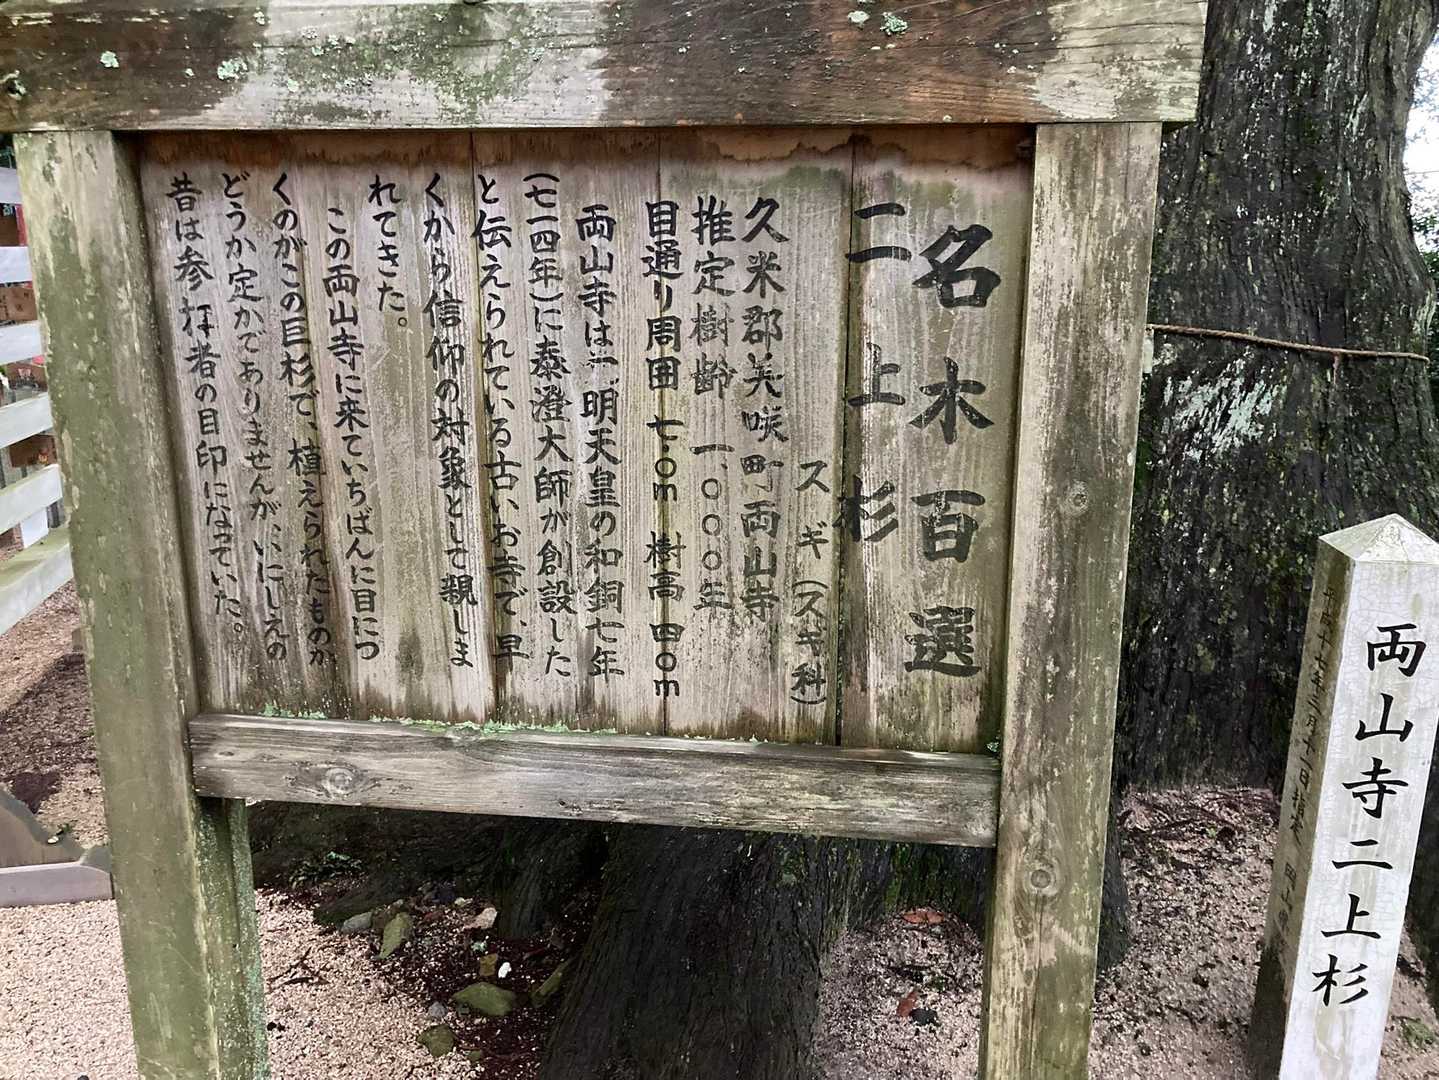 名木百選
二上杉
スギ(スギ科)
久米郡美咲町両山寺
推定樹齢 一、〇〇〇年
目通り周囲 七.〇m 樹高 四〇m
両山寺は元明天皇の和銅七年
(七一四年)に泰澄大師が創設した
と伝えられている古いお寺で、早
くから信仰の対象として親しま
れてきた。
この両山寺に来ていちばんに目につ
くのがこの巨杉で、植えられたものか
どうか定かでありませんが、いにしえの
昔は参拝者の目印になっていた。
両山寺二上杉